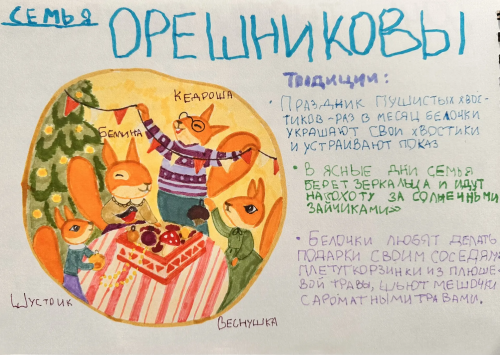 СЕМЬЯ
ОРЕШНИКОВЫ
КЕДРОША
БЕЛИНА
ШУСТРИК
ВЕСНУШКА
ТРАДИЦИИ:
• ПРАЗДНИК ПУШИСТЫХ ХВОС-
ТИКОВ - РАЗ В МЕСЯЦ БЕЛОЧКИ
УКРАШАЮТ СВОИ ХВОСТИКИ
И УСТРАИВАЮТ ПОКАЗ
• В ЯСНЫЕ ДНИ СЕМЬЯ
БЕРЕТ ЗЕРКАЛЬЦА И ИДУТ
НА «ОХОТУ ЗА СОЛНЕЧНЫМИ
ЗАЙЧИКАМИ»
• БЕЛОЧКИ ЛЮБЯТ ДЕЛАТЬ
ПОДАРКИ СВОИМ СОСЕДЯМ:
ПЛЕТУТ КОРЗИНКИ ИЗ ПЛЮШЕ
ВОЙ ТРАВЫ, ШЬЮТ МЕШОЧКИ
С АРОМАТНЫМИ ТРАВАМИ.